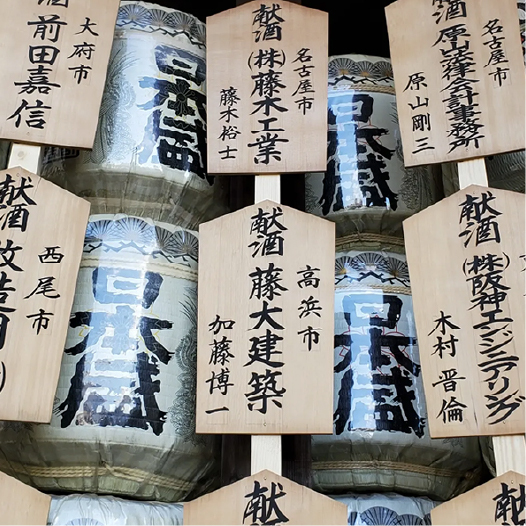 大府市
酒 前田嘉信
名古屋市
献酒 (株)藤木工業
藤木裕士
名古屋市
献酒 原山法律会計事務所
原山剛三
日本盛
日本盛
西尾市
献酒 改造
高浜市
献酒 藤大建築
加藤博一
献酒 (株)阪神エンジニアリング
木村晋倫
日本盛
日本盛
献
献